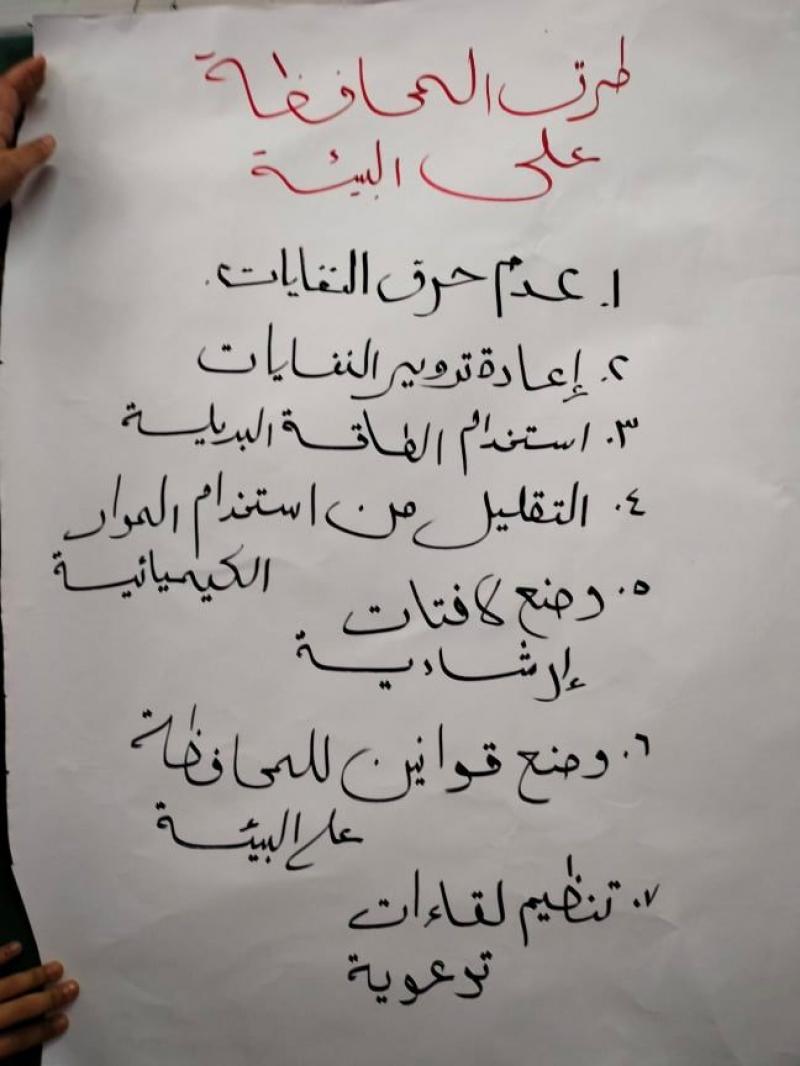 طرق المحافظة
على البيئة
١. عدم حرق النفايات.
٢. إعادة تدوير النفايات
٣. استخدام الطاقة البديلة
٤. التقليل من استخدام المواد
الكيميائية
٥. وضع لافتات
إرشادية
٦. وضع قوانين للمحافظة
على البيئة
٧. تنظيم لقاءات
توعوية